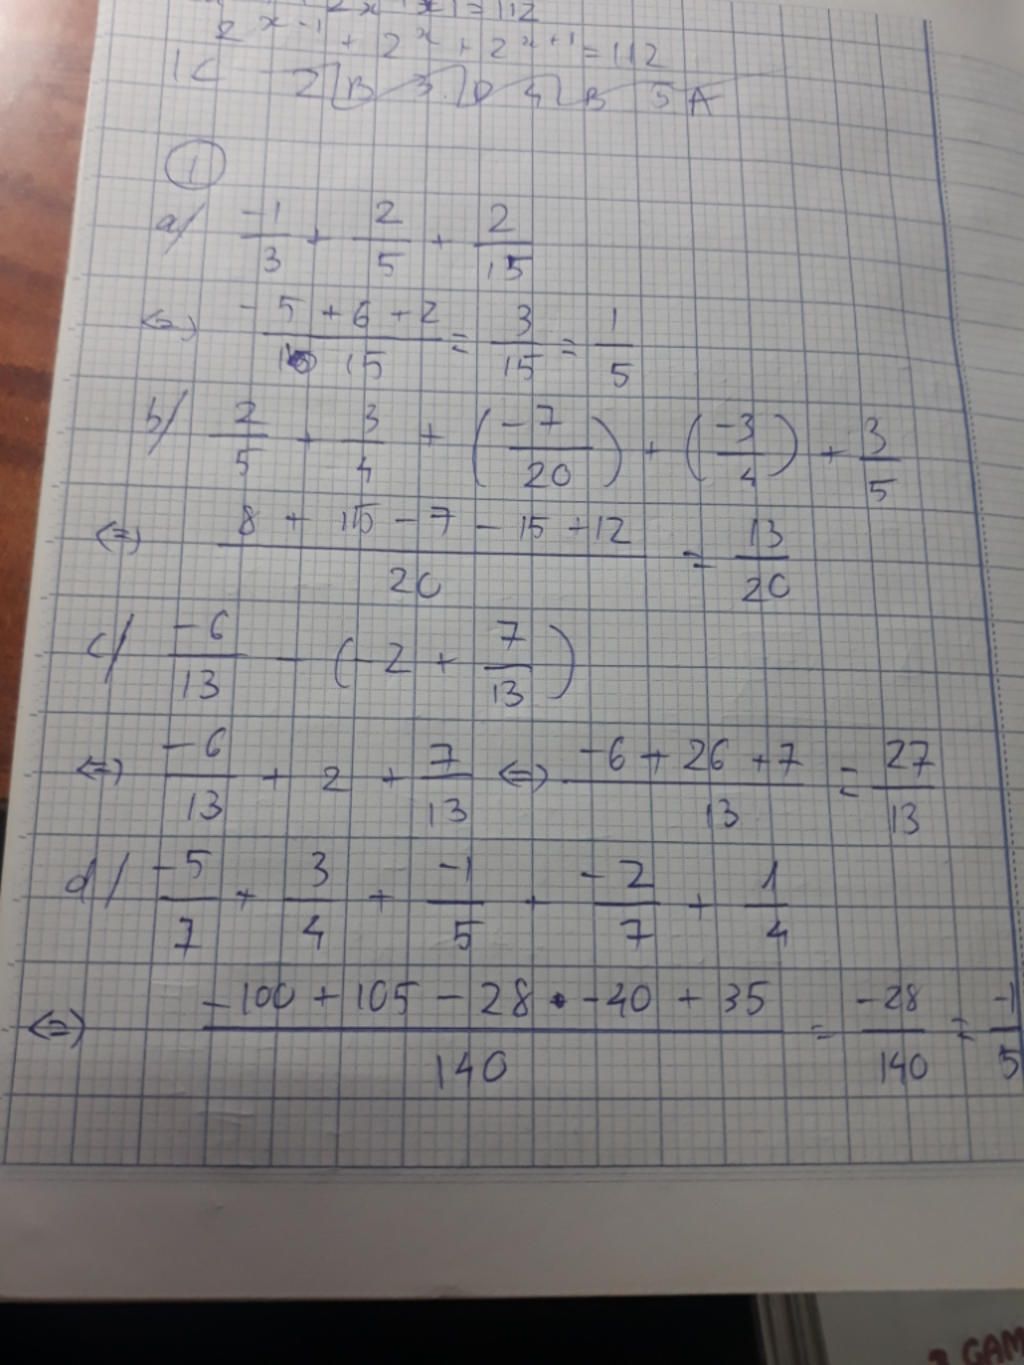 2^x-1 + 2^x + 2^x+1 = 112
1C 2B 3D 4B 5A
①
a/ -1/3 + 2/5 + 2/15
<=> -5 + 6 + 2/15 = 3/15 = 1/5
b/ 2/5 + 3/4 + (-7/20) + (-3/4) + 3/5
<=> 8 + 15 - 7 - 15 + 12/20 = 13/20
c/ -6/13 - (-2 + 7/13)
<=> -6/13 + 2 + 7/13 <=> -6 + 26 + 7/13 = 27/13
d/ -5/7 + 3/4 + -1/5 + -2/7 + 1/4
<=> -100 + 105 - 28 - 40 + 35/140 = -28/140 = -1/5
GAM